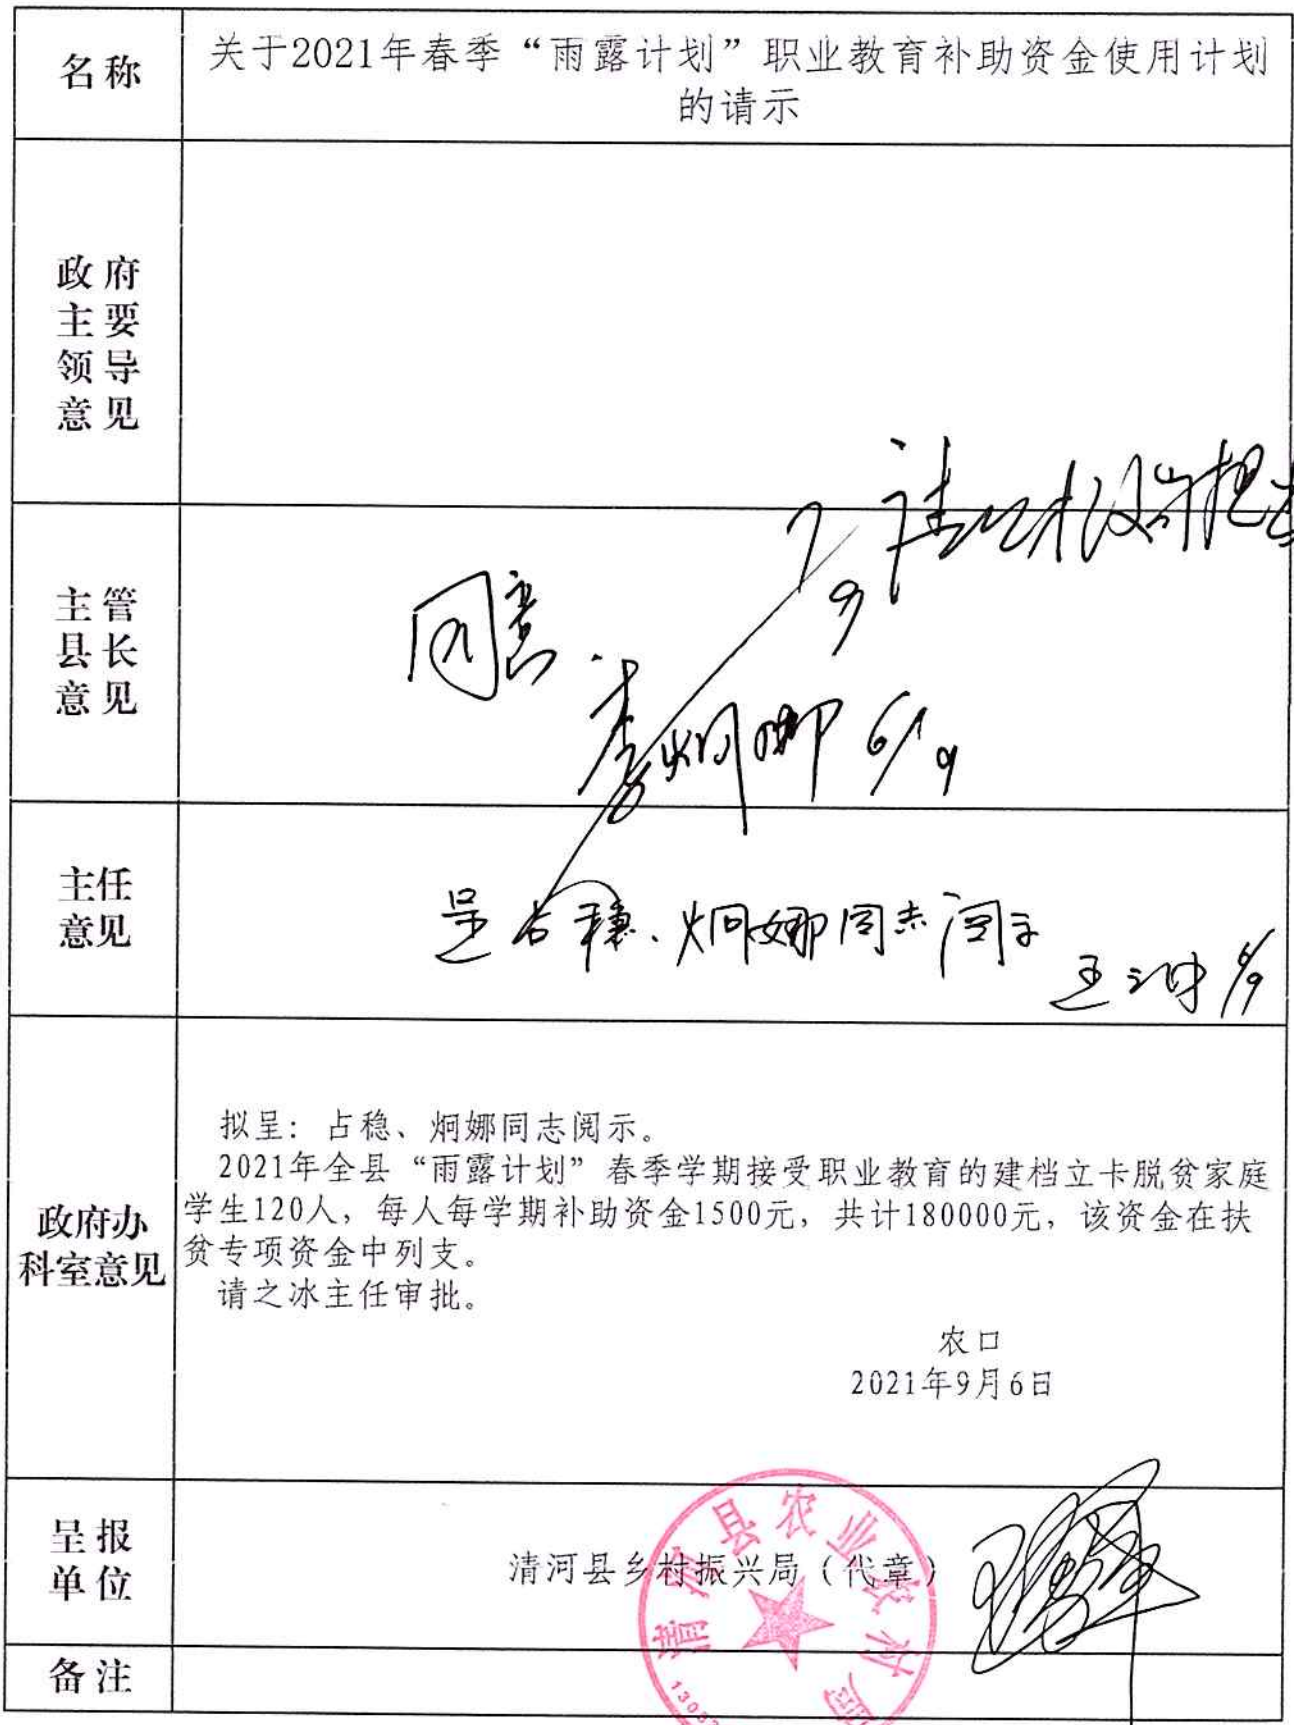 名称
关于2021年春季“雨露计划”职业教育补助资金使用计划
的请示
政府
主要
领导
意见
主管
县长
意见
同意
李炯娜 6/9
7/9
主任
意见
呈占稳、炯娜同志阅示
6/9
政府办
科室意见
拟呈：占稳、炯娜同志阅示。
2021年全县“雨露计划”春季学期接受职业教育的建档立卡脱贫家庭
学生120人，每人每学期补助资金1500元，共计180000元，该资金在扶
贫专项资金中列支。
请之冰主任审批。
农口
2021年9月6日
呈报
单位
清河县乡村振兴局（代章）
清河县农业农村局
备注